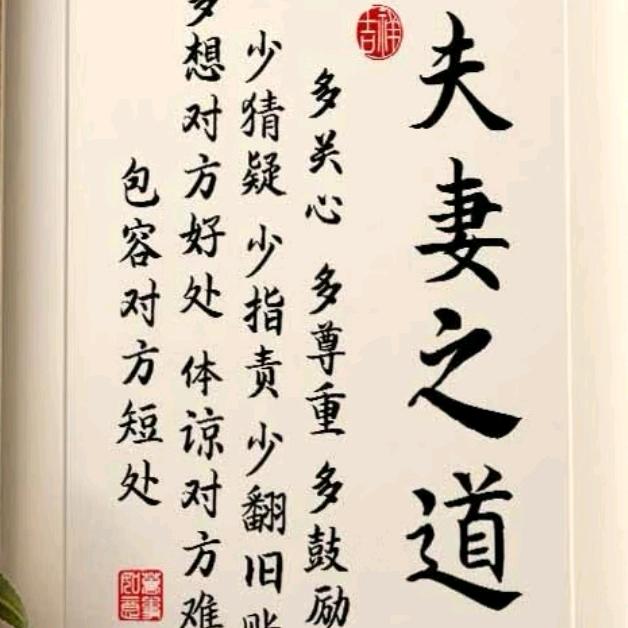 夫妻之道
吉祥
多关心 多尊重 多鼓励
少猜疑 少指责 少翻旧账
多想对方好处 体谅对方难
包容对方短处
万事如意